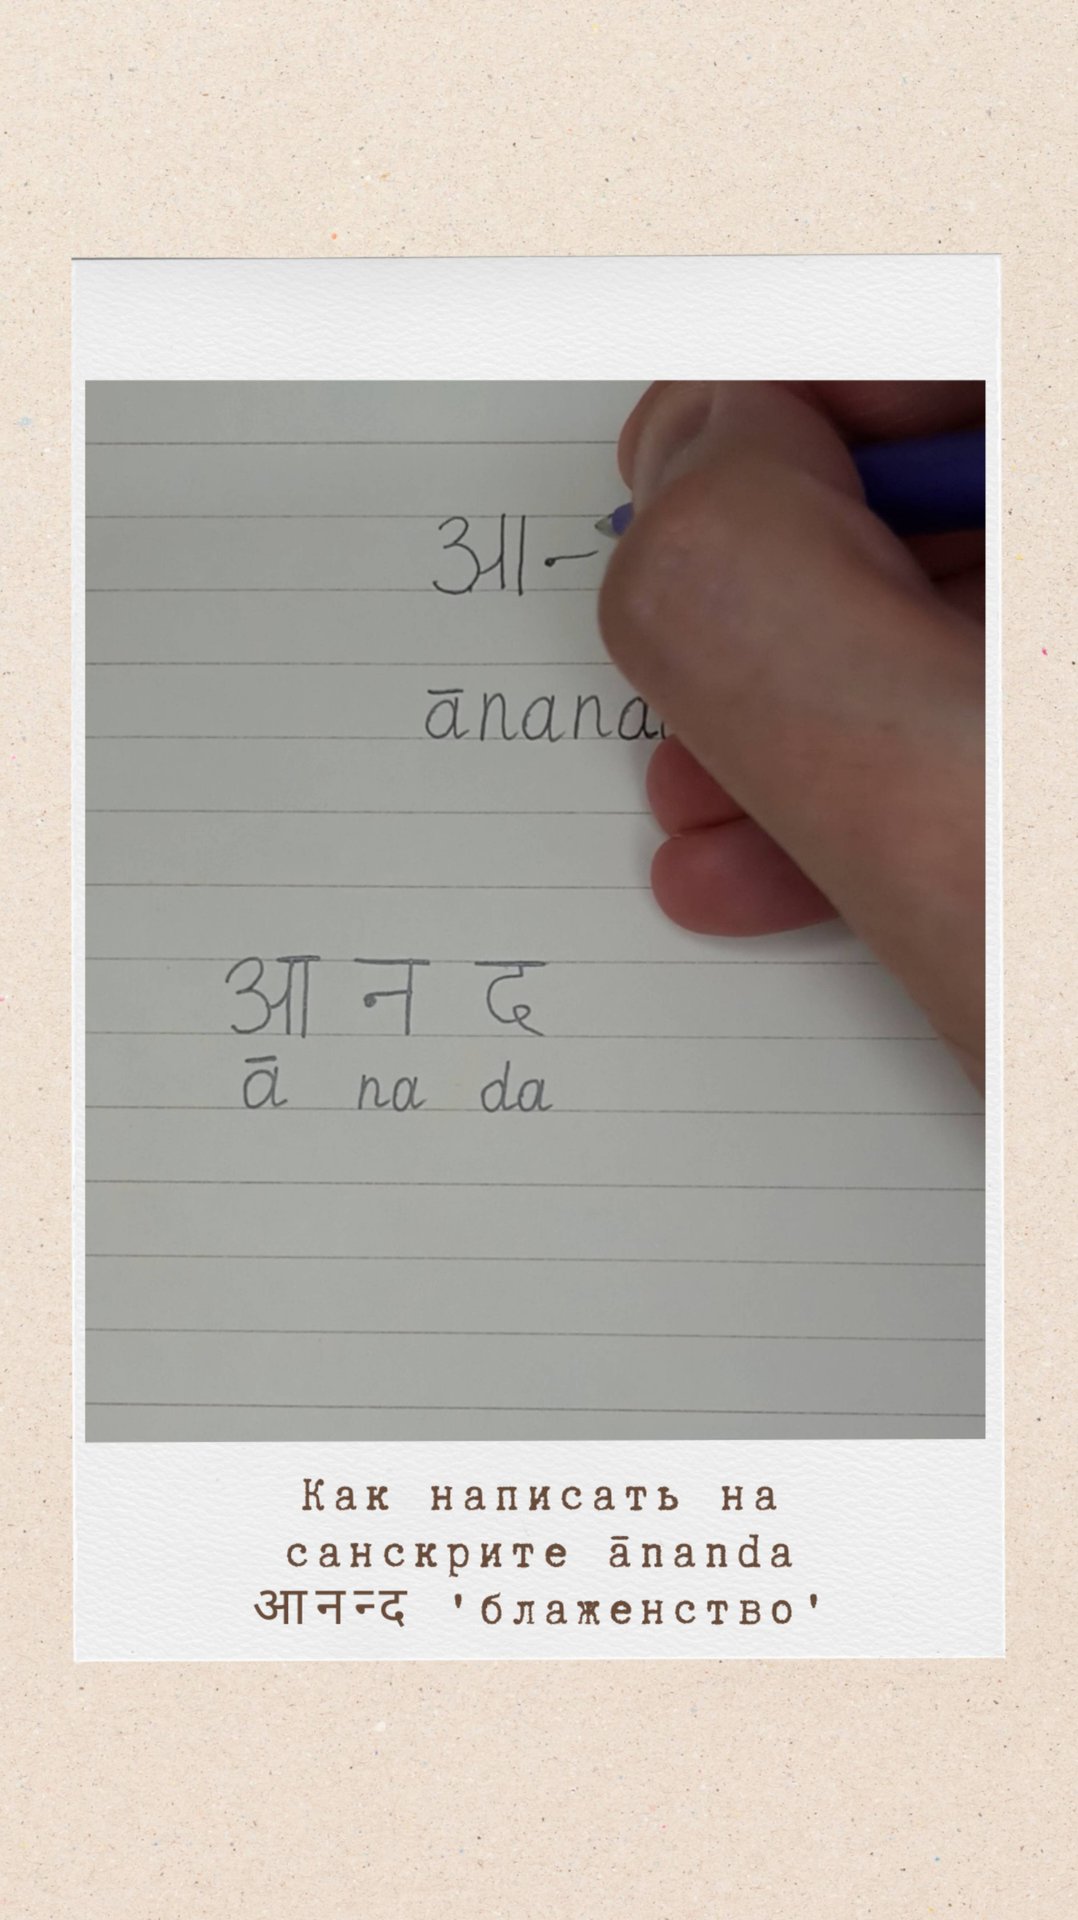 आ
ānan
आ न द
ā na da
Как написать на
санскрите ānanda
आनन्द 'блаженство'